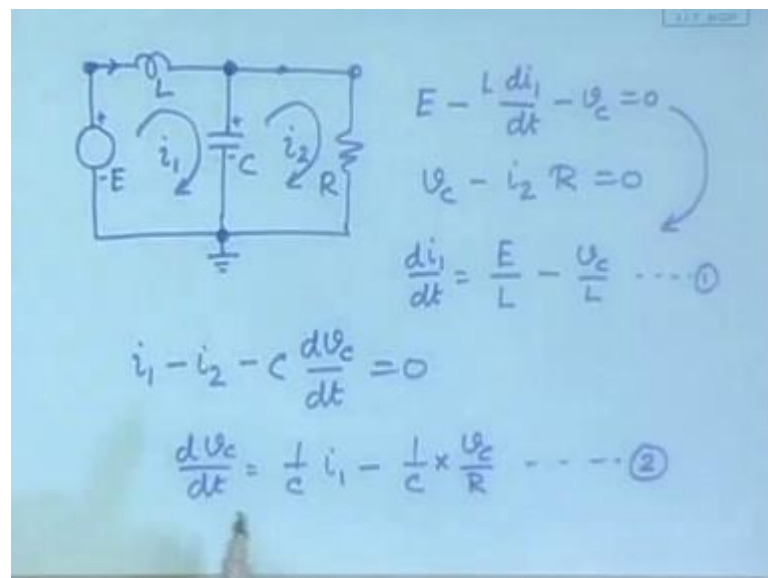 L
+
-E
i₁
+
-C
i₂
R
E - L di₁/dt - v_c = 0
v_c - i₂ R = 0
di₁/dt = E/L - v_c/L ---- ①
i₁ - i₂ - C dv_c/dt = 0
dv_c/dt = 1/C i₁ - 1/C × v_c/R ----- ②